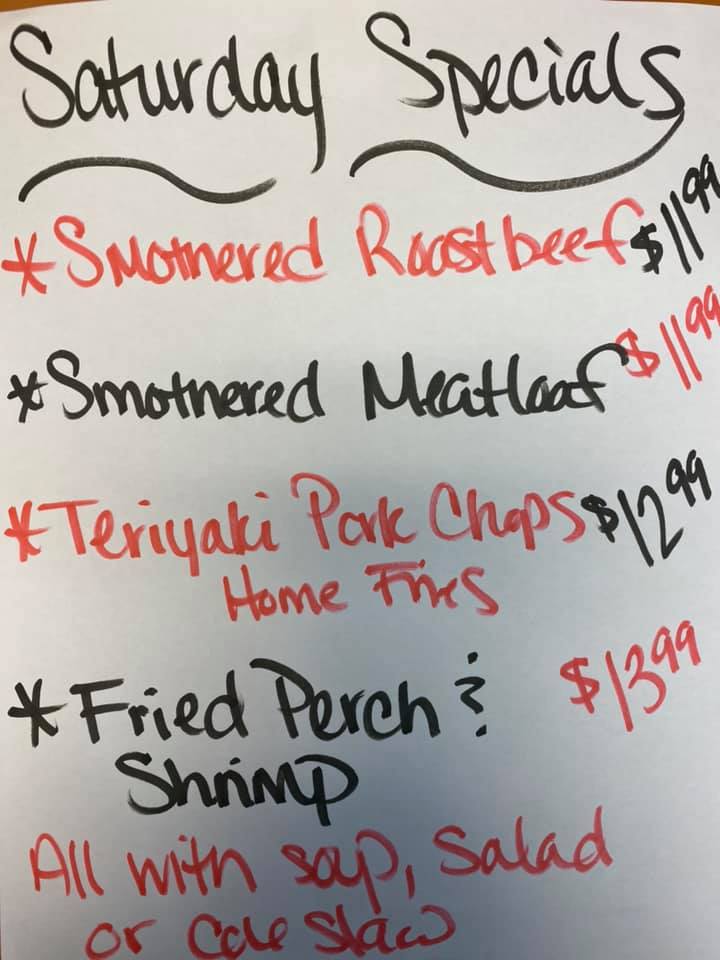 Saturday Specials
*Smothered Roastbeef $11.99
*Smothered Meatloaf $11.99
*Teriyaki Pork Chops $12.99
Home Fries
*Fried Perch & $13.99
Shrimp
All with soup, Salad
or Cole Slaw